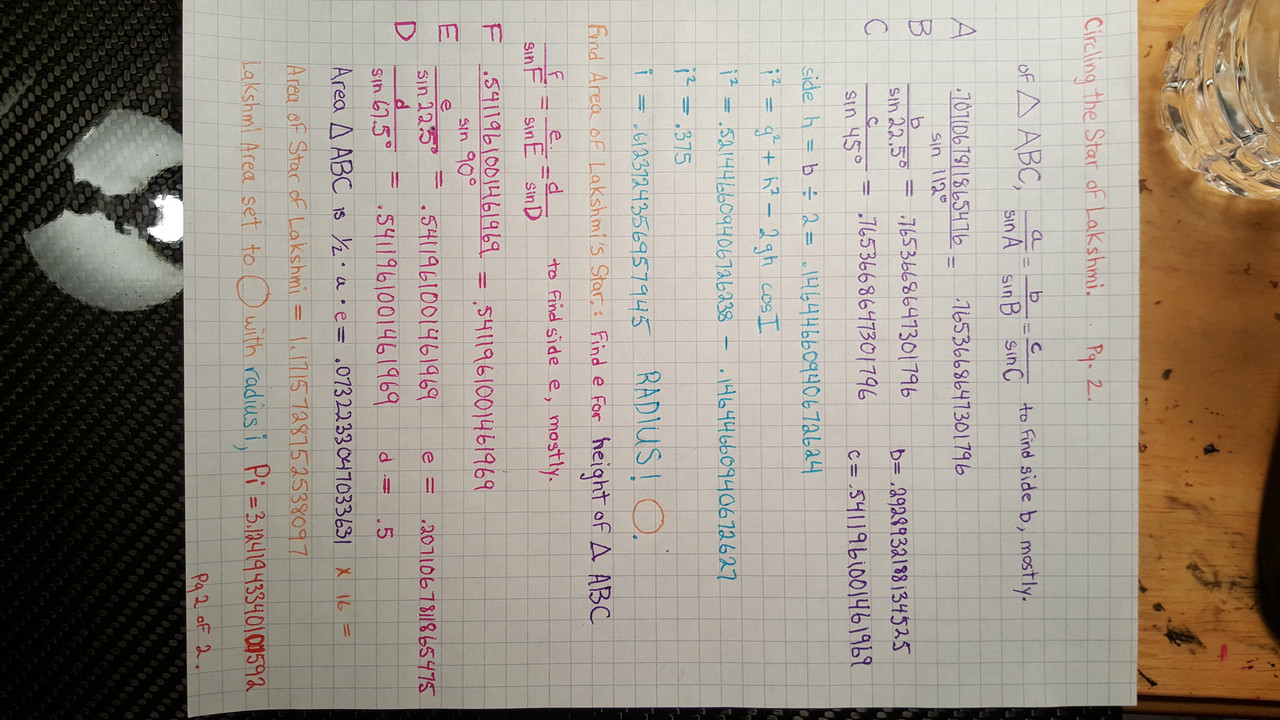 Circling the Star of Lakshmi. Pg. 2.
of △ ABC, a/sin A = b/sin B = c/sin C to find side b, mostly.
A .707106781186 5476 / sin 112° = .7653668647301796
B b/sin 22.5° = .7653668647301796 b = .2928932188134525
C c/sin 45° = .7653668647301796 c = .5411961001461969
side h = b ÷ 2 = .14644660940672624
i² = g² + h² - 2gh cos I
i² = .521446609406726238 - .14644660940672627
i² = .375
i = .6123724356957945 RADIUS! ○.
Find Area of Lakshmi's Star: Find e for height of △ ABC
f/sin F = e/sin E = d/sin D to find side e, mostly.
F .5411961001461969 / sin 90° = .5411961001461969
E e/sin 22.5° = .5411961001461969 e = .2071067811865475
D d/sin 67.5° = .5411961001461969 d = .5
Area △ ABC is ½ · a · e = .0732233047033631 x 16 =
Area of Star of Lakshmi = 1.1715728752538097
Lakshmi Area set to ○ with radius i, Pi = 3.1241943340100592
Pg 2 of 2.